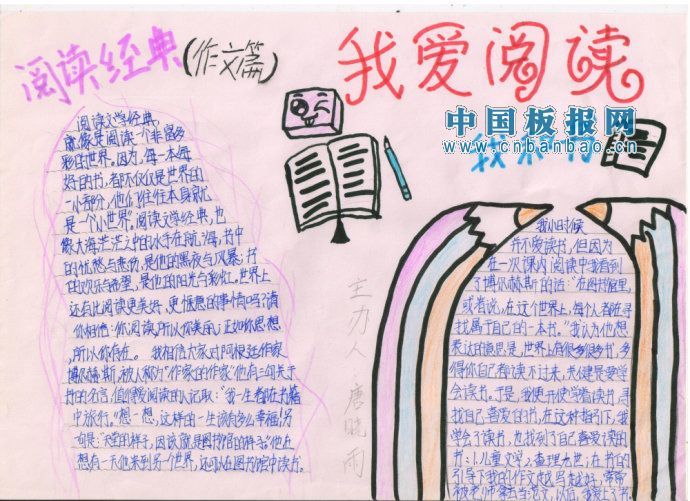 阅读经典(作文篇)
我爱阅读
中国板报网
www.cnbanbao.cn
阅读文学经典,
就像是阅读一个非富多
彩的世界。因为,每一本每
好的书,都不仅仅是世界的
一小部分,他们往往本身就
是一个小世界。阅读文学经典,也
像大海茫茫中的水手在航海,书中
的忧愁与悲伤,是他的黑夜与风暴;书
的欢乐与希望,是他的阳光与彩虹。世界上
还有比阅读更美好,更惬意的事情吗?请
你相信:你阅读,所以你美丽;正如你思想
,所以你存在。 我相信大家对阿根廷作家
博尔赫斯,被人称为"作家的作家"他有三句关于
书的名言,值得我阅读的人记取:"我一生都在书籍
中旅行。"想一想,这样的一生该有多么幸福!另
一句是:"天堂的样子,因该就是图书馆的样子。"他在
想有一天他来到另一个世界,还可以在图书馆中读书。
主办人 唐晓雨
我小时候
并不爱读书,但因为
在一次课内阅读中我看到
了博尔赫斯的话:"在图书馆里,
或者说,在这个世界上,每个人都在寻
找属于自己的一本书。"我认为他想
表达的意思是,世界上有很多很多书,多
得你自己都读不过来,关键是要学
会读书。于是,我便开使学着读书,寻
找自己喜爱的书,在这种指引下,我
学会了读书,也找到了自己喜爱读的
书:《儿童文学》
引导下我的作文也写越好,常常